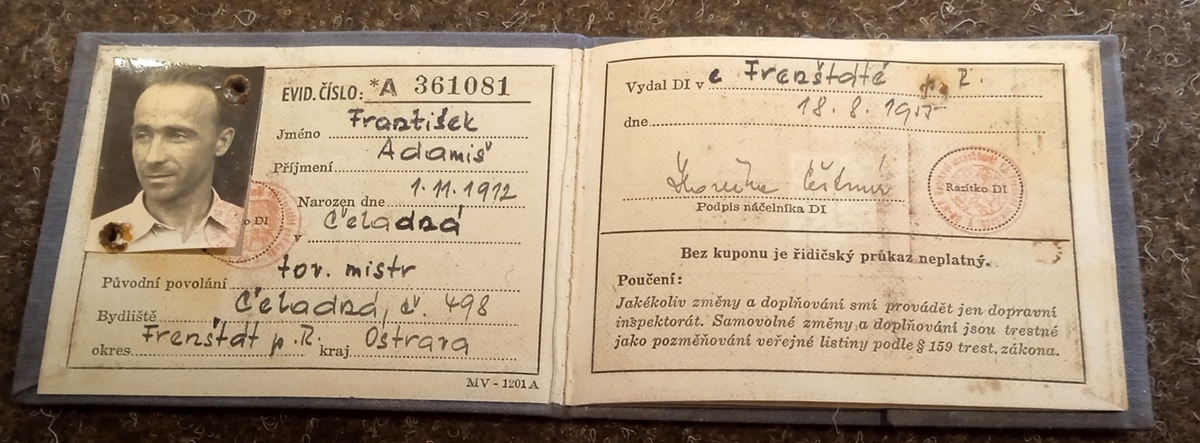 EVID. ČÍSLO: *A 361081
Jméno František
Příjmení Adamiš
Narozen dne 1.11.1912
v Čeladná
o DI
Původní povolání tov. mistr
Bydliště Čeladná, č. 498
okres Frenštát p. R. kraj Ostrava
MV - 1201 A
Vydal DI v e Frenštátě p. R.
dne 18. 8. 1955
Podpis náčelníka DI
Razítko DI
Bez kuponu je řidičský průkaz neplatný.
Poučení:
Jakékoliv změny a doplňování smí provádět jen dopravní
inspektorát. Samovolné změny a doplňování jsou trestné
jako pozměňování veřejné listiny podle § 159 trest. zákona.